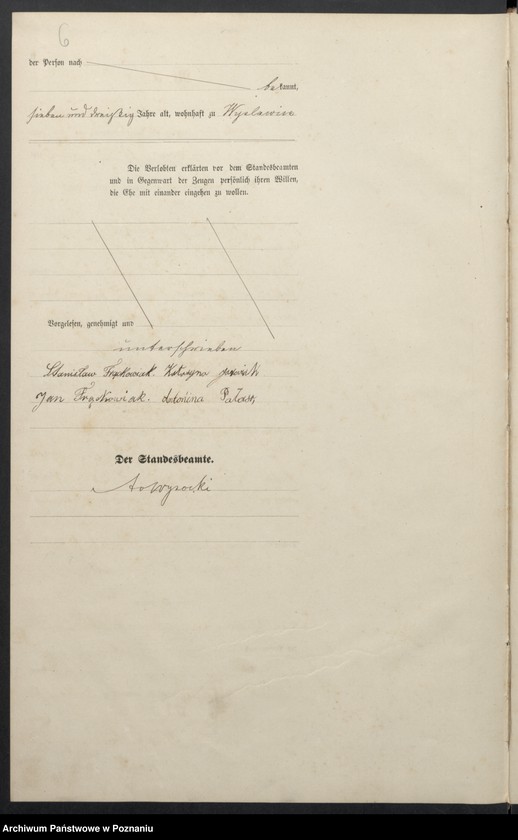 6
der Person nach
bekannt,
sieben und dreißig Jahre alt, wohnhaft zu
Die Verlobten erklärten vor dem Standesbeamten
und in Gegenwart der Zeugen persönlich ihren Willen,
die Ehe mit einander eingehen zu wollen.
Vorgelesen, genehmigt und
unterschrieben
Stanisław Frąckowiak Katarzyna
Jan Frąckowiak.
Der Standesbeamte.
Archiwum Państwowe w Poznaniu